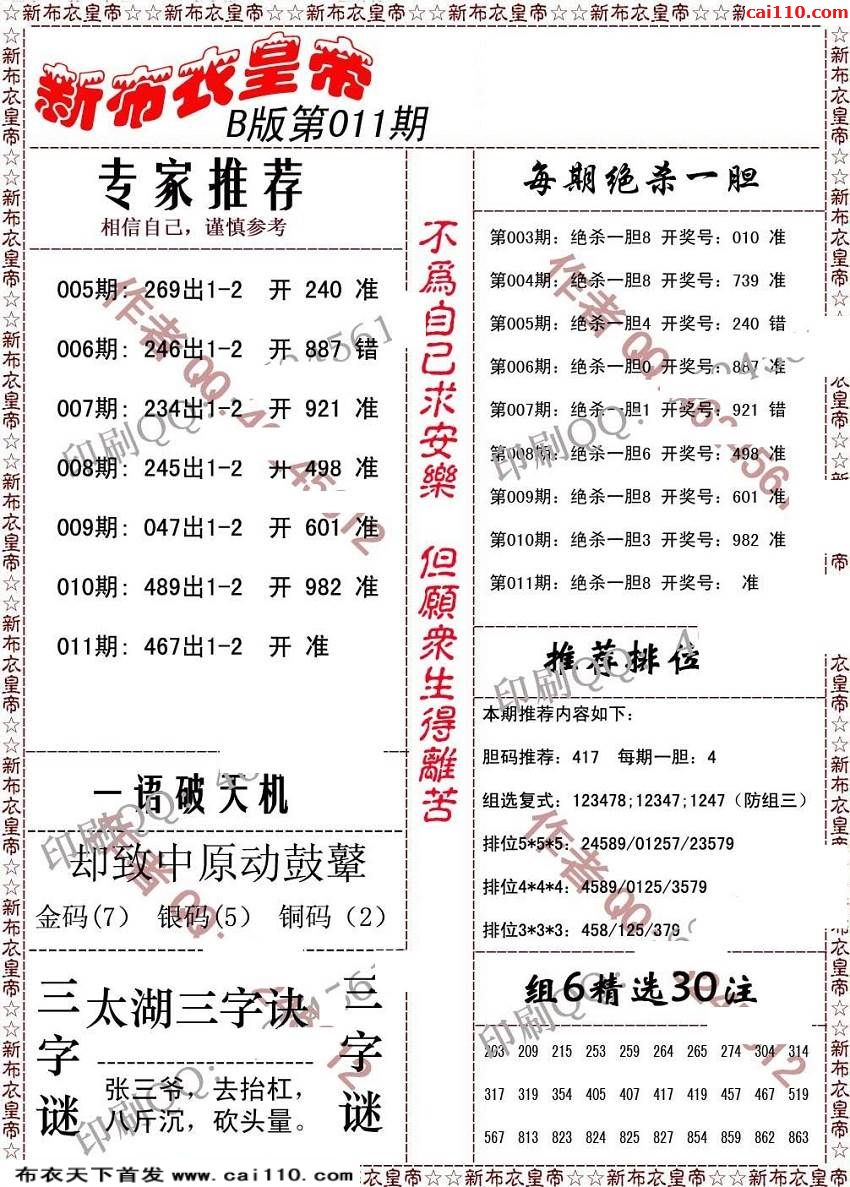 ☆☆新布衣皇帝☆☆新布衣皇帝☆☆新布衣皇帝☆☆新布衣皇帝☆☆新布衣皇帝☆☆
cai110.com
新布衣皇帝
B版第011期
专家推荐
相信自己，谨慎参考
005期: 269出1-2 开 240 准
006期: 246出1-2 开 887 错
007期: 234出1-2 开 921 准
008期: 245出1-2 开 498 准
009期: 047出1-2 开 601 准
010期: 489出1-2 开 982 准
011期: 467出1-2 开 准
一语破天机
却致中原动鼓鼙
金码(7) 银码(5) 铜码(2)
三字谜
太湖三字诀
张三爷，去抬杠，
八斤沉，砍头量。
三字谜
不為自己求安樂 但願衆生得離苦
每期绝杀一胆
第003期: 绝杀一胆8 开奖号: 010 准
第004期: 绝杀一胆8 开奖号: 739 准
第005期: 绝杀一胆4 开奖号: 240 错
第006期: 绝杀一胆0 开奖号: 887 准
第007期: 绝杀一胆1 开奖号: 921 错
第008期: 绝杀一胆6 开奖号: 498 准
第009期: 绝杀一胆8 开奖号: 601 准
第010期: 绝杀一胆3 开奖号: 982 准
第011期: 绝杀一胆8 开奖号: 准
推荐排位
本期推荐内容如下:
胆码推荐: 417 每期一胆: 4
组选复式: 123478;12347;1247（防组三）
排位5*5*5: 24589/01257/23579
排位4*4*4: 4589/0125/3579
排位3*3*3: 458/125/379
组6精选30注
203 209 215 253 259 264 265 274 304 314
317 319 354 405 407 417 419 457 467 519
567 813 823 824 827 854 859 862 863
布衣天下首发 www.cai110.com
衣皇帝☆☆新布衣皇帝☆☆新布衣皇帝☆☆新布衣皇帝☆☆